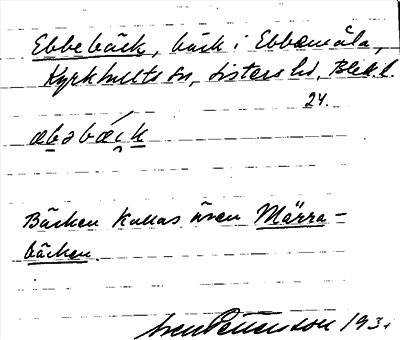 Ebbebäck, bäck i Ebbamåla,
Kyrkhults sn, Listers hd, Blek. l.
24.
æbəbæ̂k
Bäcken kallas även Märra-
bäcken.
Sven Petersson 193